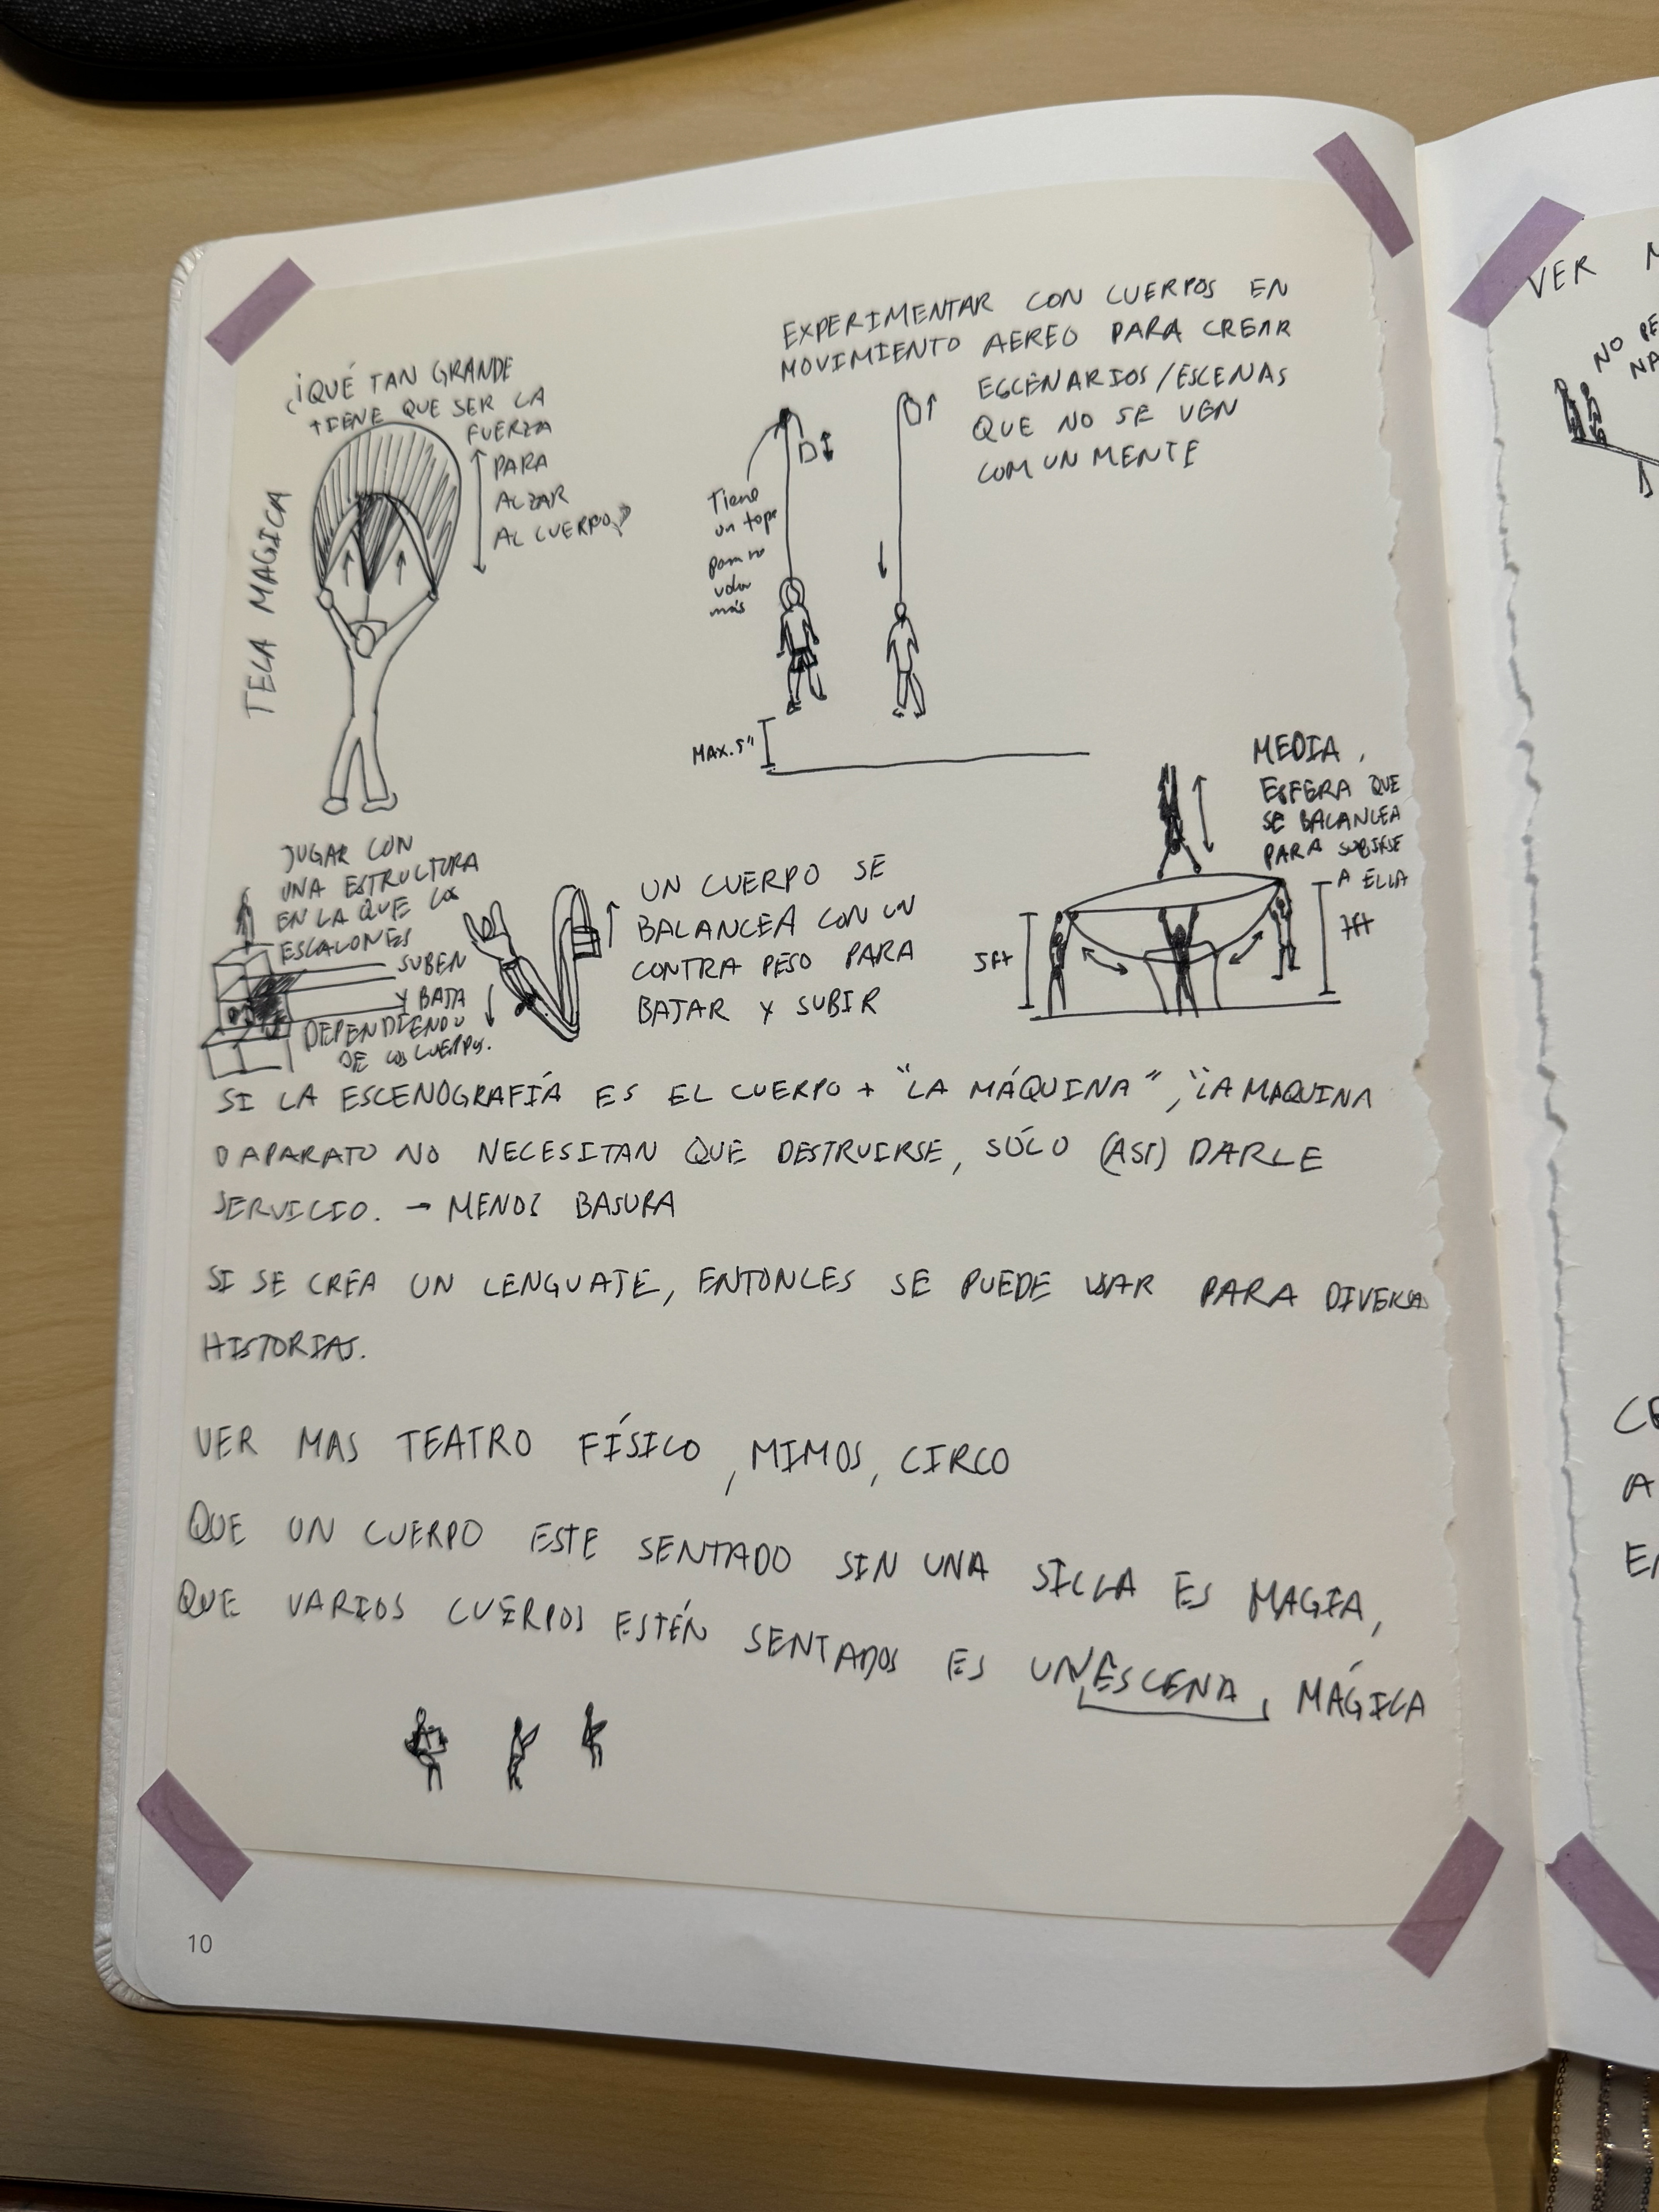 TELA MAGICA
¿QUÉ TAN GRANDE
TIENE QUE SER LA
FUERZA
PARA
ALZAR
AL CUERPO?
EXPERIMENTAR CON CUERPOS EN
MOVIMIENTO AEREO PARA CREAR
ESCENARIOS/ESCENAS
QUE NO SE VEN
COMUNMENTE
Tiene
un tope
para no
volar
más
MAX. 5"
JUGAR CON
UNA ESTRUCTURA
EN LA QUE LOS
ESCALONES
SUBEN
Y BAJA
DEPENDIENDO
DE LOS CUERPOS.
UN CUERPO SE
BALANCEA CON UN
CONTRA PESO PARA
BAJAR Y SUBIR
MEDIA
ESFERA QUE
SE BALANCEA
PARA SUBIRSE
A ELLA
5ft
7ft
SI LA ESCENOGRAFÍA ES EL CUERPO + "LA MÁQUINA", "LA MAQUINA
O APARATO NO NECESITAN QUE DESTRUIRSE, SÓLO (ASI) DARLE
SERVICIO. → MENOS BASURA
SI SE CREA UN LENGUAJE, ENTONCES SE PUEDE USAR PARA DIVERSA
HISTORIAS.
VER MAS TEATRO FÍSICO, MIMOS, CIRCO
QUE UN CUERPO ESTE SENTADO SIN UNA SILLA ES MAGIA,
QUE VARIOS CUERPOS ESTÉN SENTADOS ES UN ESCENA MÁGICA
10
VER
NO